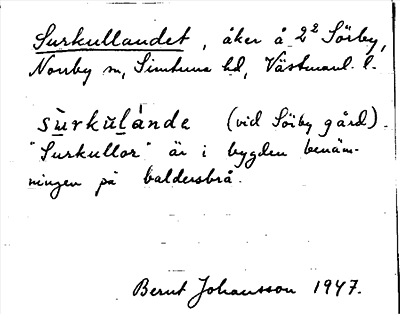 Surkullandet, åker å 2² Sörby,
Norrby sn, Simtuna hd, Västmanl. l.
sùrkulánde (vid Sörby gård).
"Surkullor" är i bygden benäm-
ningen på baldersbrå.
Bernt Johansson 1947.